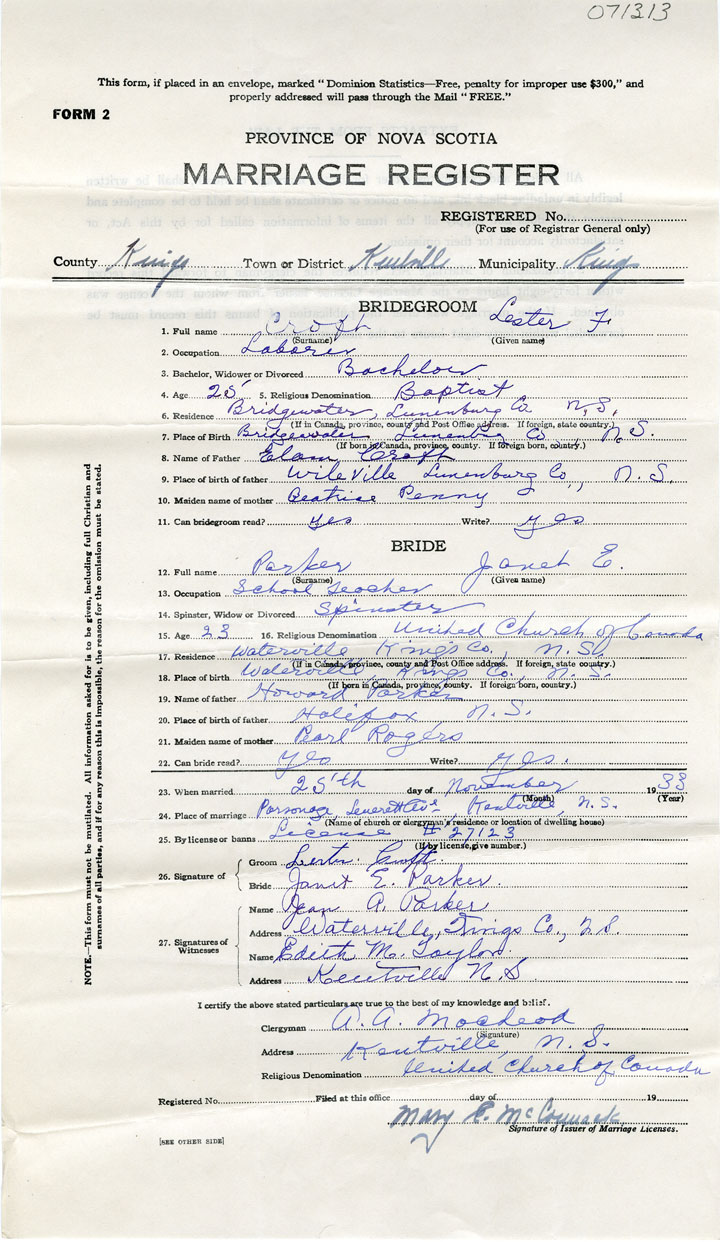 071313
This form, if placed in an envelope, marked "Dominion Statistics—Free, penalty for improper use $300," and
properly addressed will pass through the Mail "FREE."
FORM 2
PROVINCE OF NOVA SCOTIA
MARRIAGE REGISTER
REGISTERED No.
(For use of Registrar General only)
County Kings Town or District Kentville Municipality Kings
BRIDEGROOM
1. Full name Croft Lester F.
(Surname) (Given name)
2. Occupation Laborer
3. Bachelor, Widower or Divorced Bachelor
4. Age 25 5. Religious Denomination Baptist
6. Residence Bridgewater, Lunenburg Co. N.S.
(If in Canada, province, county and Post Office address. If foreign, state country.)
7. Place of Birth Bridgewater, Lunenburg Co., N.S.
(If born in Canada, province, county. If foreign born, country.)
8. Name of Father Elam Croft
9. Place of birth of father WileVille Lunenburg Co., N.S.
10. Maiden name of mother Beatrice Penny
11. Can bridegroom read? Yes Write? Yes
BRIDE
12. Full name Parker Janet E.
(Surname) (Given name)
13. Occupation School Teacher
14. Spinster, Widow or Divorced Spinster
15. Age 23 16. Religious Denomination United Church of Canada
17. Residence Waterville King's Co., N.S.
(If in Canada, province, county and Post Office address. If foreign, state country.)
18. Place of birth Waterville, Kings Co., N.S.
(If born in Canada, province, county. If foreign born, country.)
19. Name of father Howard Parker
20. Place of birth of father Halifax N.S.
21. Maiden name of mother Pearl Rogers
22. Can bride read? Yes Write? Yes.
23. When married 25'th day of November 1933
(Month) (Year)
24. Place of marriage Parsonage, Leverett Ave, Kentville, N.S.
(Name of church or clergyman's residence or location of dwelling house)
25. By license or banns License # 27123
(If by license, give number.)
26. Signature of
Groom Lester Croft.
Bride Janet E. Parker.
27. Signatures of Witnesses
Name Jean A. Parker
Address Waterville, Kings Co., N.S.
Name Edith M. Taylor.
Address Kentville N.S
I certify the above stated particulars are true to the best of my knowledge and belief.
Clergyman A. A. MacLeod
(Signature)
Address Kentville, N.S.
Religious Denomination United Church of Canada
Registered No. Filed at this office day of 19
Mary E. McCormack
Signature of Issuer of Marriage Licenses.
[SEE OTHER SIDE]
NOTE.—This form must not be mutilated. All information asked for is to be given, including full Christian and
surnames of all parties, and if for any reason this is impossible, the reason for the omission must be stated.